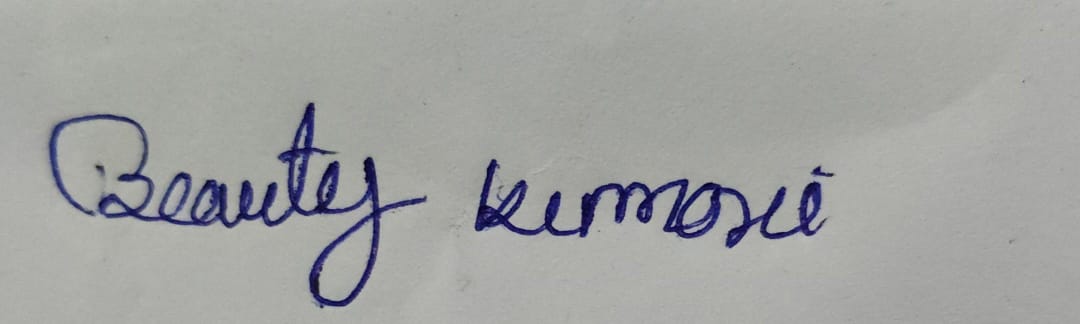 Beauty kumari